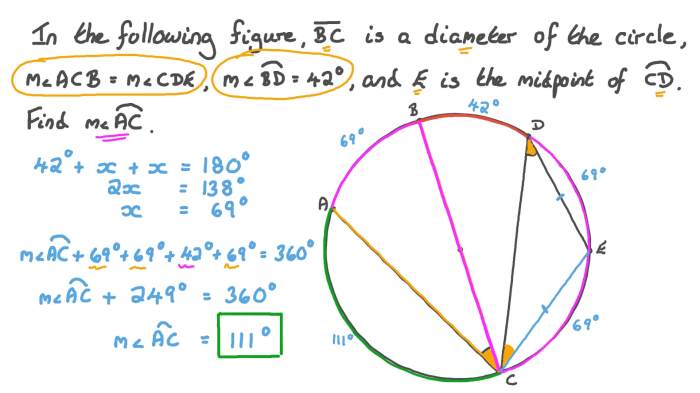 In the following figure, BC is a diameter of the circle,
m∠ACB = m∠CDE, m∠BD = 42°, and E is the midpoint of CD.
Find m∠AC.
42° + x + x = 180°
2x = 138°
x = 69°
m∠AC + 69° + 69° + 42° + 69° = 360°
m∠AC + 249° = 360°
m∠AC = 111°
B
42°
D
69°
69°
A
E
111°
69°
C